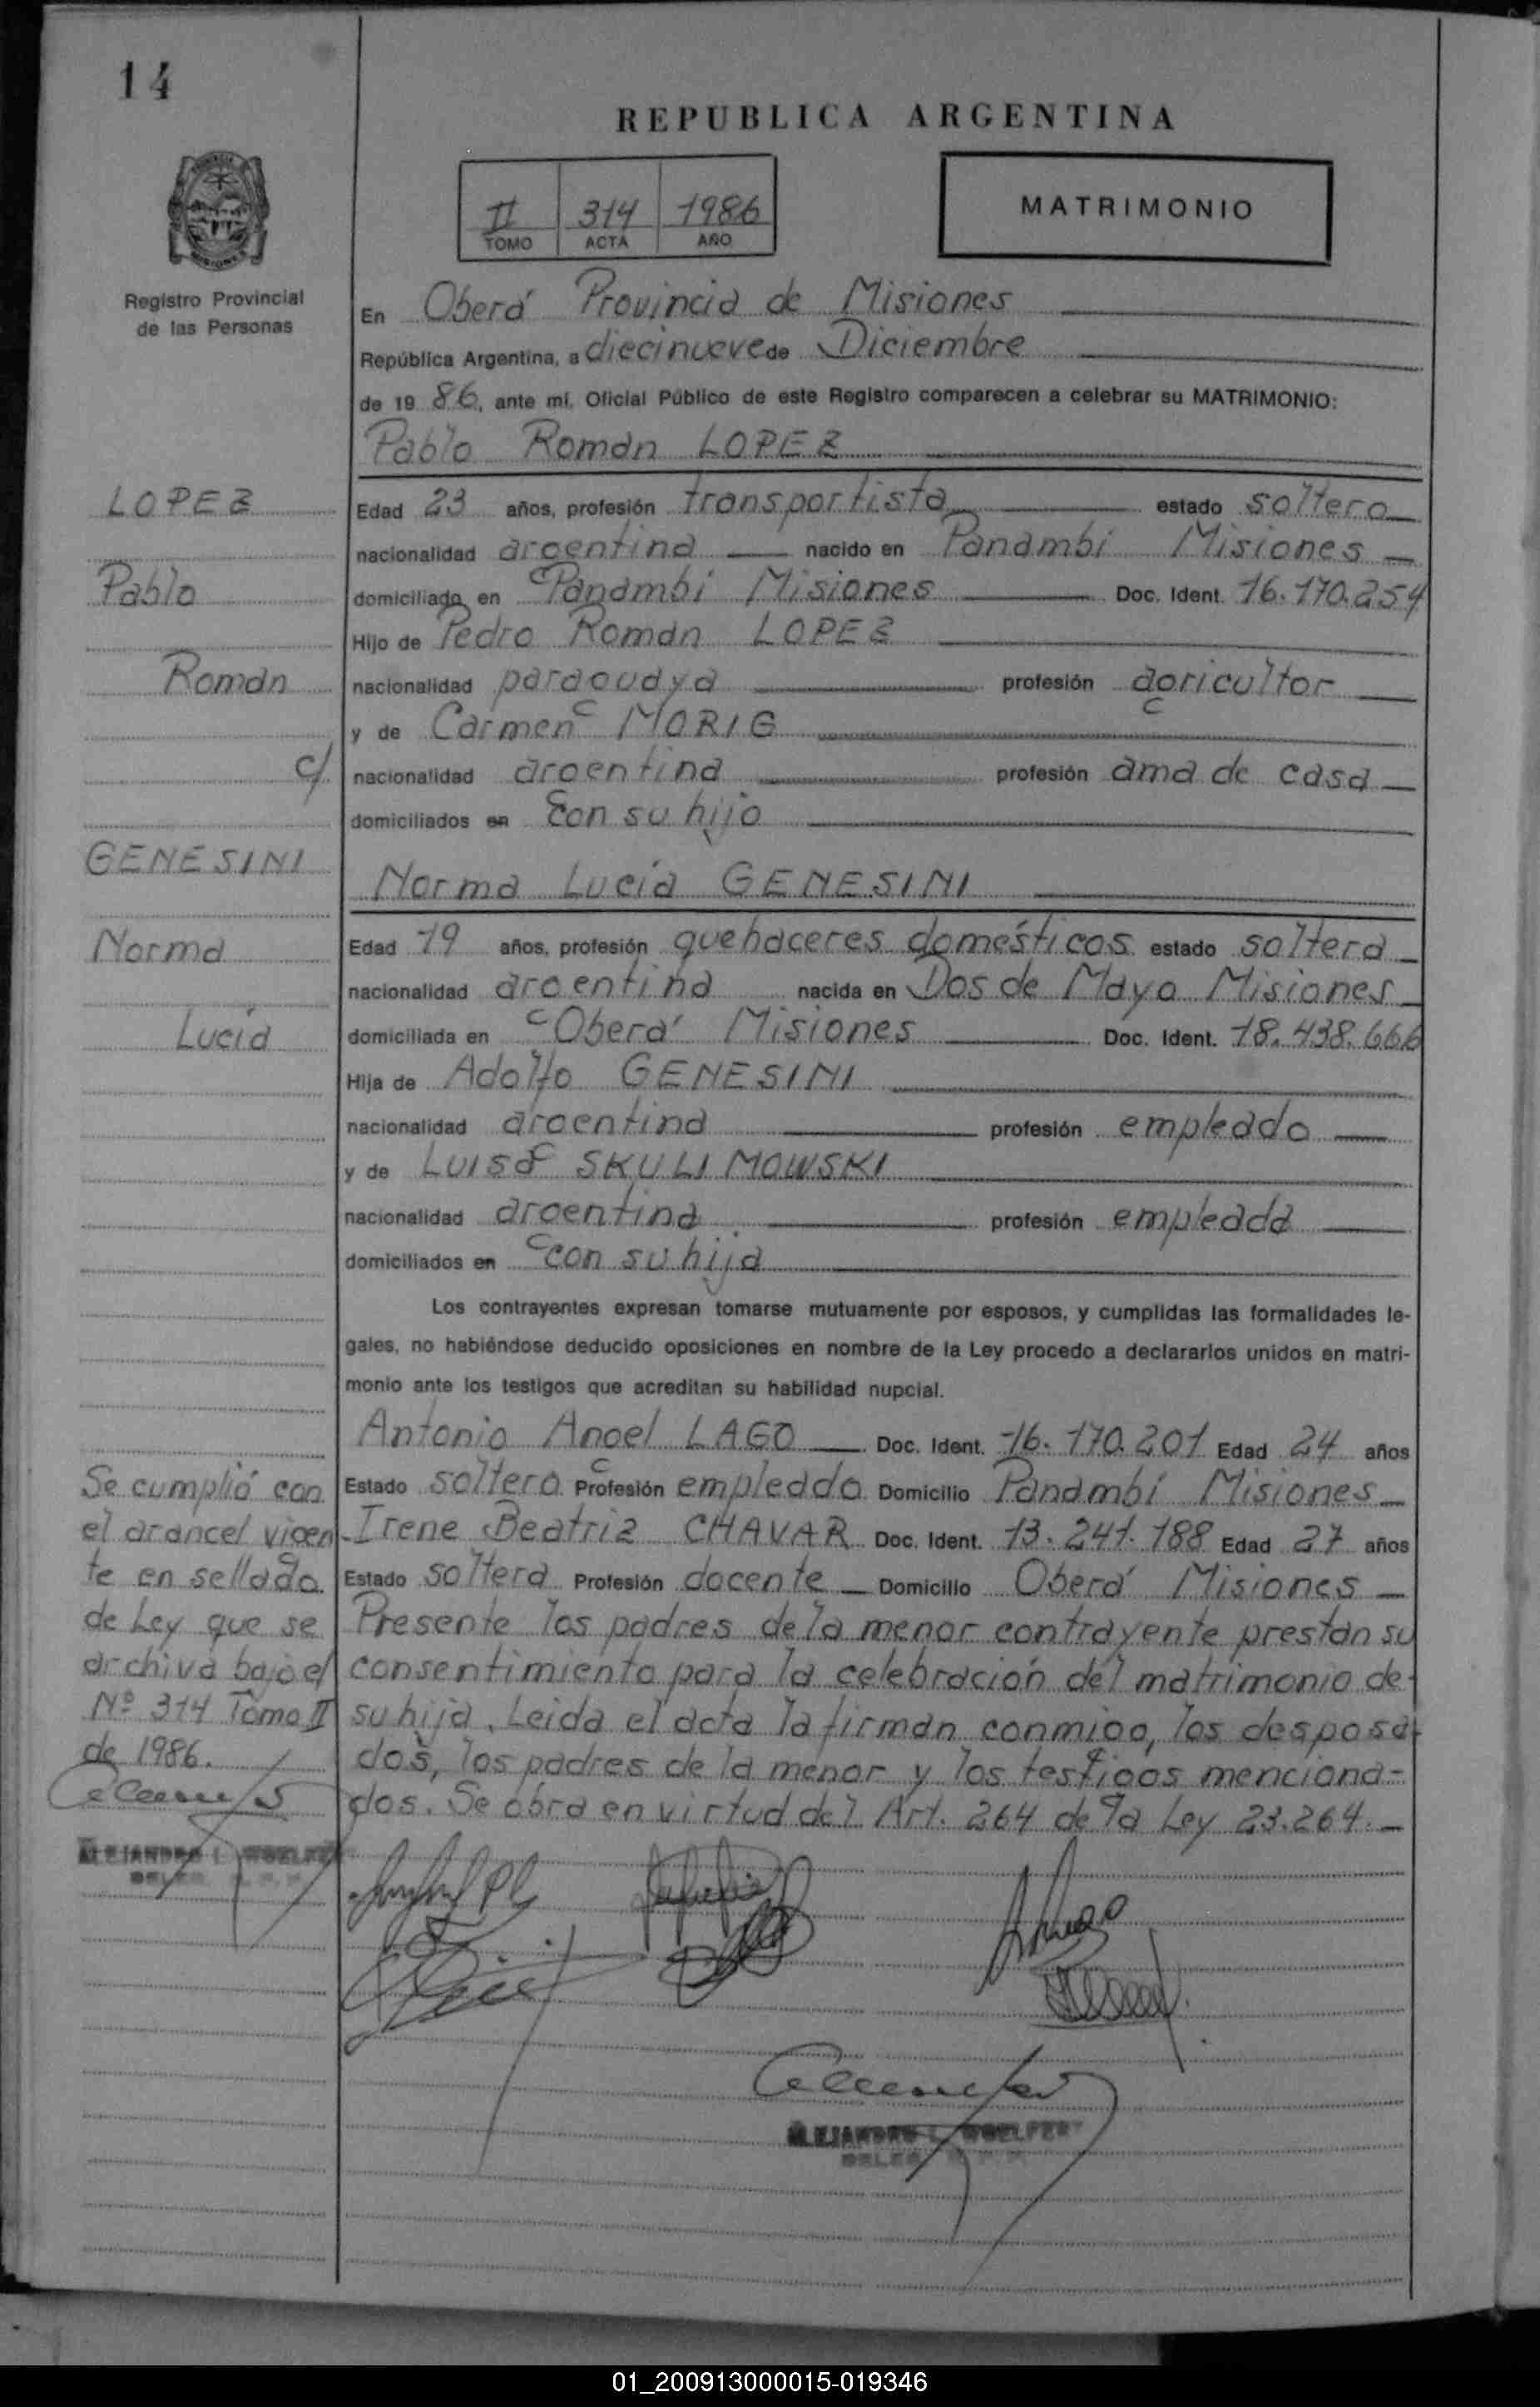 14
REPUBLICA ARGENTINA
II 314 1986
TOMO ACTA AÑO
MATRIMONIO
Registro Provincial
de las Personas
En Oberá Provincia de Misiones
República Argentina, a diecinueve de Diciembre
de 19 86, ante mí, Oficial Público de este Registro comparecen a celebrar su MATRIMONIO:
Pablo Román LOPEZ
LOPEZ
Pablo
Román
c/
GENESINI
Norma
Lucía
Edad 23 años, profesión transportista estado soltero
nacionalidad argentina nacido en Panambí Misiones
domiciliado en Panambí Misiones Doc. Ident. 16.170.254
Hijo de Pedro Román LOPEZ
nacionalidad paraguaya profesión agricultor
y de Carmen MORIG
nacionalidad argentina profesión ama de casa
domiciliados en con su hijo
Norma Lucía GENESINI
Edad 19 años, profesión quehaceres domésticos estado soltera
nacionalidad argentina nacida en Dos de Mayo Misiones
domiciliada en Oberá Misiones Doc. Ident. 18.438.666
Hija de Adolfo GENESINI
nacionalidad argentina profesión empleado
y de LUISA SKULIMOWSKI
nacionalidad argentina profesión empleada
domiciliados en con su hija
Los contrayentes expresan tomarse mutuamente por esposos, y cumplidas las formalidades le-
gales, no habiéndose deducido oposiciones en nombre de la Ley procedo a declararlos unidos en matri-
monio ante los testigos que acreditan su habilidad nupcial.
Antonio Angel LAGO Doc. Ident. 16.170.201 Edad 24 años
Estado soltero Profesión empleado Domicilio Panambí Misiones
Irene Beatriz CHAVAR Doc. Ident. 13.241.188 Edad 27 años
Estado soltera Profesión docente Domicilio Oberá Misiones
Presente los padres de la menor contrayente prestan su
consentimiento para la celebración del matrimonio de
su hija. Leida el acta la firman conmigo, los desposa-
dos, los padres de la menor y los testigos menciona-
dos. Se obra en virtud del Art. 264 de la Ley 23.264.
Se cumplió con
el arancel vigen
te en sellado
de Ley que se
archiva bajo el
Nº 314 Tomo II
de 1986.
ALEJANDRO
ALEJANDRO
01_200913000015-019346